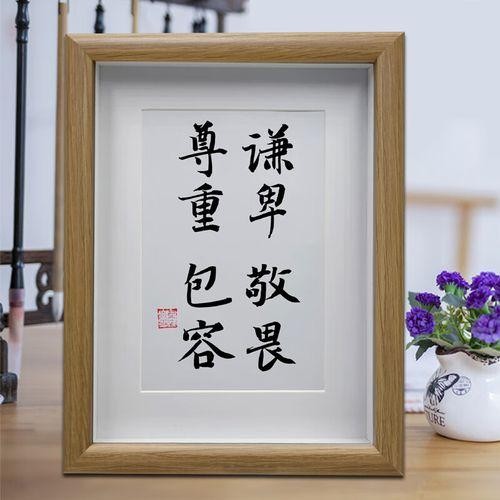 谦卑 敬畏
尊重 包容
NATURE